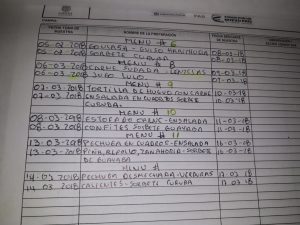 PAE
FECHA TOMA DE MUESTRA NOMBRE DE LA PREPARACIÓN
MENU # 6
05-03-2018 08-03-18
05-03-2018 SORBETE CURUBA 08-03-18
MENU # 8
06-03-2018 CARNE SUDADA LENTEJAS 09-03-18
06-03-2018 JUGO LULO 09-03-18
MENU # 9
07-03-2018 TORTILLA DE HUEVO CON CARNE 10-03-18
07-03-2018 ENSALADA EN CUADROS SORBETE 10-03-18
CURUBA.
MENU # 10
08-03-2018 ENSALADA 11-03-18
08-03-2018 CONFITES SORBETE GUAYABA 11-03-18
MENU # 11
13-03-2018 PECHUGA EN CUADROS-ENSALADA 16-03-18
13-03-2018 PIÑA, REPOLLO, ZANAHORIA - SORBETE 16-03-18
DE GUAYABA
MENU #
14-03-2018 PECHUGA DESMECHADA-VERDURAS 17-03-18
14-03-2018 CALIENTES-SORBETE CURUBA 17-03-18